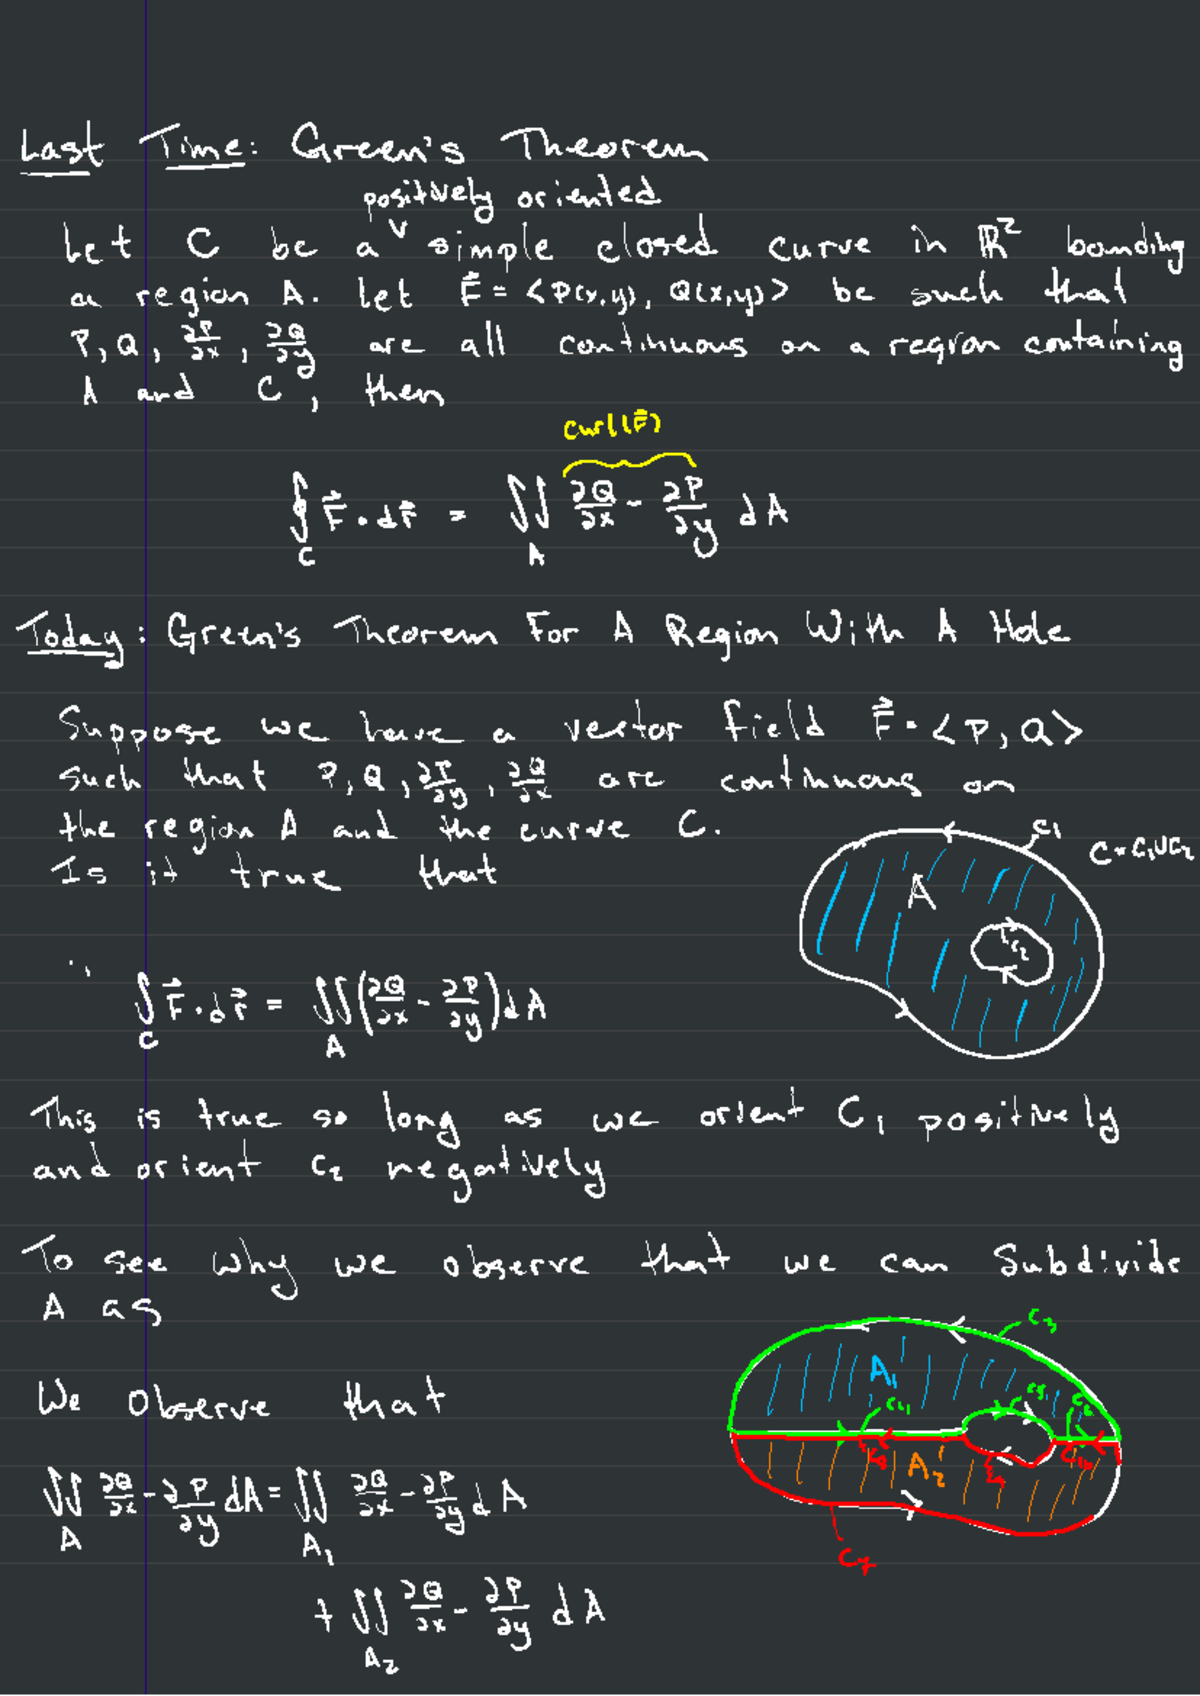 Last Time: Green's Theorem
positively oriented
Let C be a v simple closed curve in ℝ² bounding
a region A. Let F⃗ = <P(x,y), Q(x,y)> be such that
P, Q, ∂P/∂x, ∂Q/∂y are all continuous on a region containing
A and C, then
curl(F⃗)
∮_C F⃗ · dr⃗ = ∬_A ∂Q/∂x - ∂P/∂y dA
Today: Green's Theorem For A Region With A Hole
Suppose we have a vector field F⃗ = <P, Q>
such that P, Q, ∂P/∂y, ∂Q/∂x are continuous on
the region A and the curve C.
Is it true that
C₁
C = C₁∪C₂
A
C₂
∫_C F⃗ · dr⃗ = ∬_A (∂Q/∂x - ∂P/∂y) dA
This is true so long as we orient C₁ positively
and orient C₂ negatively
To see why we observe that we can Subdivide
A as
C₃
A₁
C₄
C₅
A₂
C₇
We observe that
∬_A ∂Q/∂x - ∂P/∂y dA = ∬_A₁ ∂Q/∂x - ∂P/∂y dA
+ ∬_A₂ ∂Q/∂x - ∂P/∂y dA